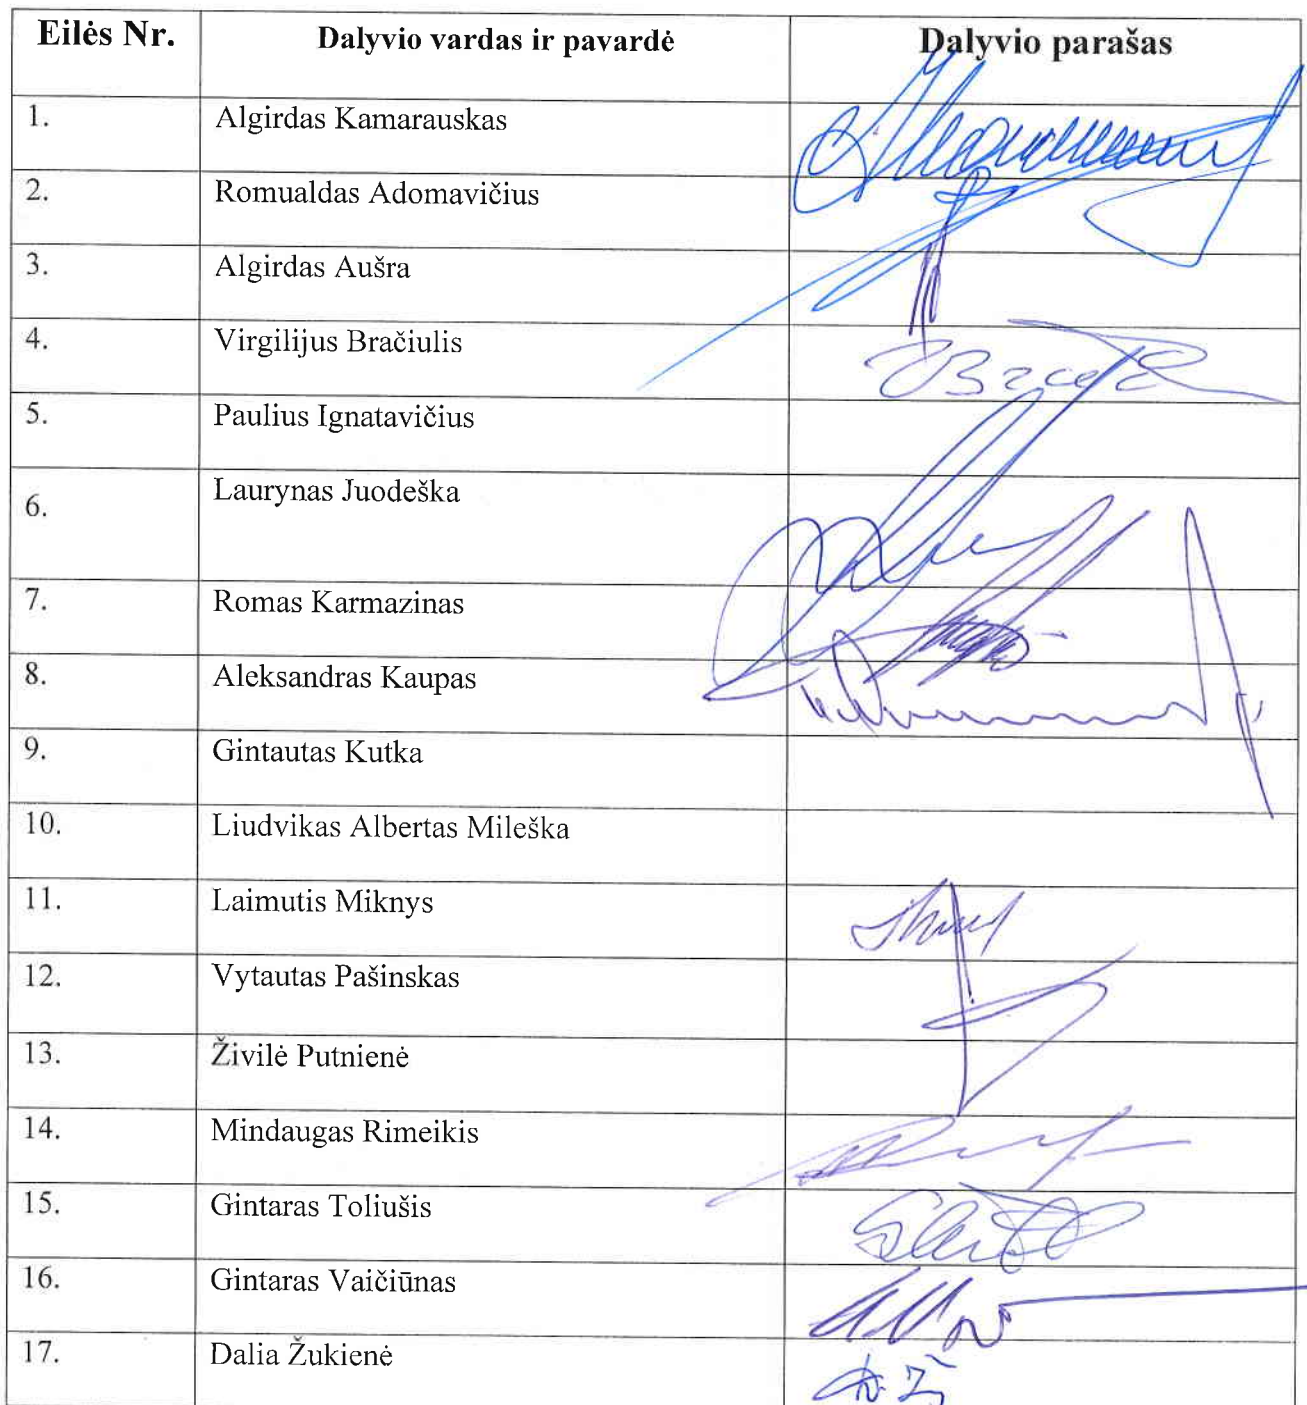 Eilės Nr. Dalyvio vardas ir pavardė Dalyvio parašas
1. Algirdas Kamarauskas
2. Romualdas Adomavičius
3. Algirdas Aušra
4. Virgilijus Bračiulis
5. Paulius Ignatavičius
6. Laurynas Juodeška
7. Romas Karmazinas
8. Aleksandras Kaupas
9. Gintautas Kutka
10. Liudvikas Albertas Mileška
11. Laimutis Miknys
12. Vytautas Pašinskas
13. Živilė Putnienė
14. Mindaugas Rimeikis
15. Gintaras Toliušis
16. Gintaras Vaičiūnas
17. Dalia Žukienė